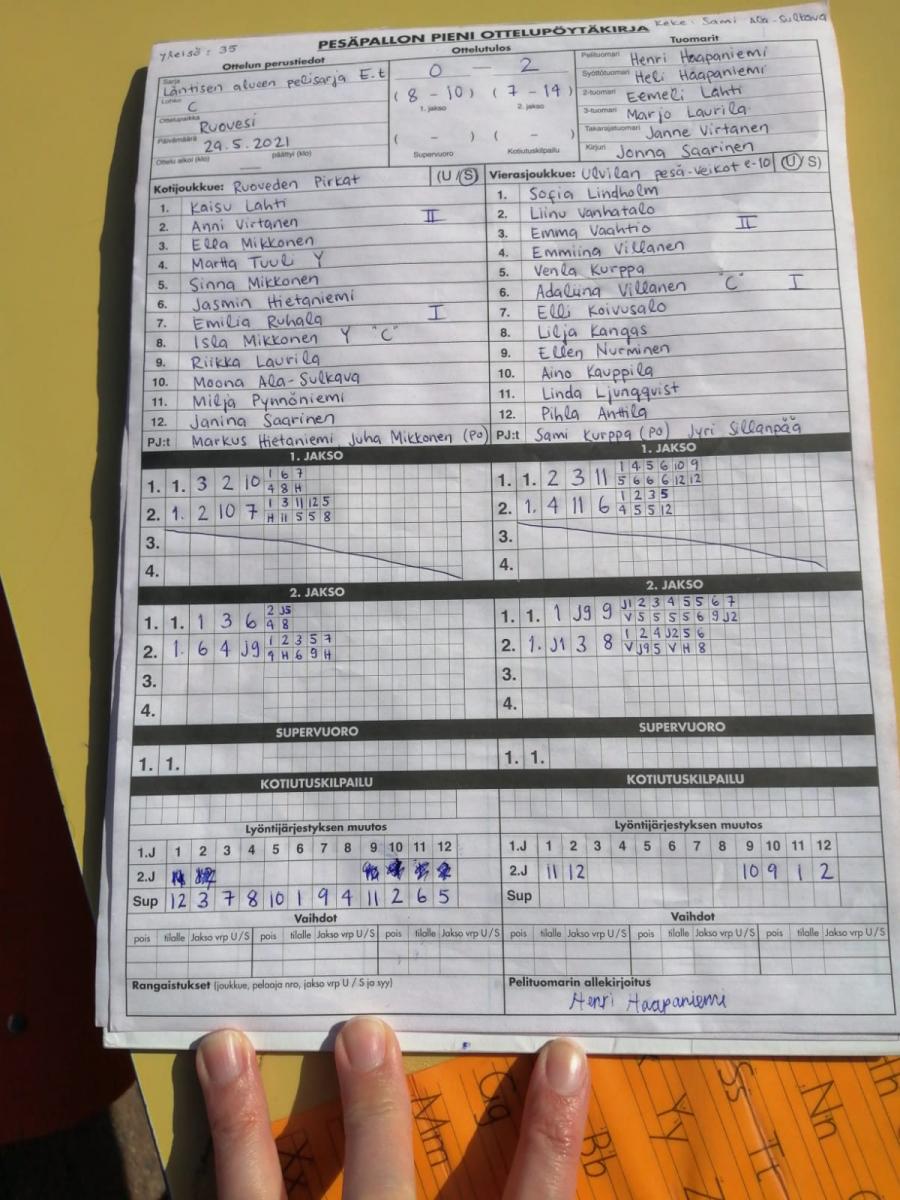 Yleisö: 35
PESÄPALLON PIENI OTTELUPÖYTÄKIRJA
Keke: Sami Ala-Sulkava
Ottelun perustiedot
Sarja Läntisen alueen pelisarja E.t
Lohko C
Ottelupaikka Ruovesi
Päivämäärä 29.5.2021
Ottelu alkoi (klo) päättyi (klo)
Ottelutulos
0 – 2
(8 - 10) (7 - 14)
1. jakso 2. jakso
( - ) ( - )
Supervuoro Kotiutuskilpailu
Tuomarit
Pelituomari Henri Haapaniemi
Syöttötuomari Heli Haapaniemi
2-tuomari Eemeli Lahti
3-tuomari Marjo Laurila
Takarajatuomari Janne Virtanen
Kirjuri Jonna Saarinen
Kotijoukkue: Ruoveden Pirkat (U/S)
1. Kaisu Lahti
2. Anni Virtanen II
3. Ella Mikkonen
4. Martta Tuuli Y
5. Sinna Mikkonen
6. Jasmin Hietaniemi
7. Emilia Ruhala I
8. Isla Mikkonen Y "C"
9. Riikka Laurila
10. Moona Ala-Sulkava
11. Milja Pynnöniemi
12. Janina Saarinen
PJ:t Markus Hietaniemi, Juha Mikkonen (PO)
Vierasjoukkue: Ulvilan pesä-veikot e-10 (U/S)
1. Sofia Lindholm
2. Liinu Vanhatalo
3. Emma Vaahtio II
4. Emmiina Villanen
5. Venla Kurppa
6. Adaliina Villanen "C" I
7. Elli Koivusalo
8. Lilja Kangas
9. Ellen Nurminen
10. Aino Kauppila
11. Linda Ljungqvist
12. Pihla Anttila
PJ:t Sami Kurppa (PO) Jyri Sillanpää
1. JAKSO
1. 1. 3 2 10 1 6 7
4 8 H
2. 1. 2 10 7 1 3 11 12 5
H 11 5 5 8
3.
4.
1. JAKSO
1. 1. 2 3 11 1 4 5 6 10 9
5 6 6 6 12 12
2. 1. 4 11 6 1 2 3 5
4 5 5 12
3.
4.
2. JAKSO
1. 1. 1 3 6 2 J5
4 8
2. 1. 6 4 J9 1 2 3 5 7
9 H 6 9 H
3.
4.
2. JAKSO
1. 1. 1 J9 9 J1 2 3 4 5 5 6 7
V 5 5 5 5 6 9 J2
2. 1. J1 3 8 1 2 4 J2 5 6
V J9 5 V H 8
3.
4.
SUPERVUORO
1. 1.
SUPERVUORO
1. 1.
KOTIUTUSKILPAILU
KOTIUTUSKILPAILU
Lyöntijärjestyksen muutos
1.J 1 2 3 4 5 6 7 8 9 10 11 12
2.J
Sup 12 3 7 8 10 1 9 4 11 2 6 5
Lyöntijärjestyksen muutos
1.J 1 2 3 4 5 6 7 8 9 10 11 12
2.J 11 12 10 9 1 2
Sup
Vaihdot
pois tilalle Jakso vrp U/S pois tilalle Jakso vrp U/S pois tilalle Jakso vrp U/S
Vaihdot
pois tilalle Jakso vrp U/S pois tilalle Jakso vrp U/S pois tilalle Jakso vrp U/S
Rangaistukset (joukkue, pelaaja nro, jakso vrp U / S ja syy)
Pelituomarin allekirjoitus
Henri Haapaniemi
Mm
Gg
Bb
Yy
Ss
Tt
Nn
Xx